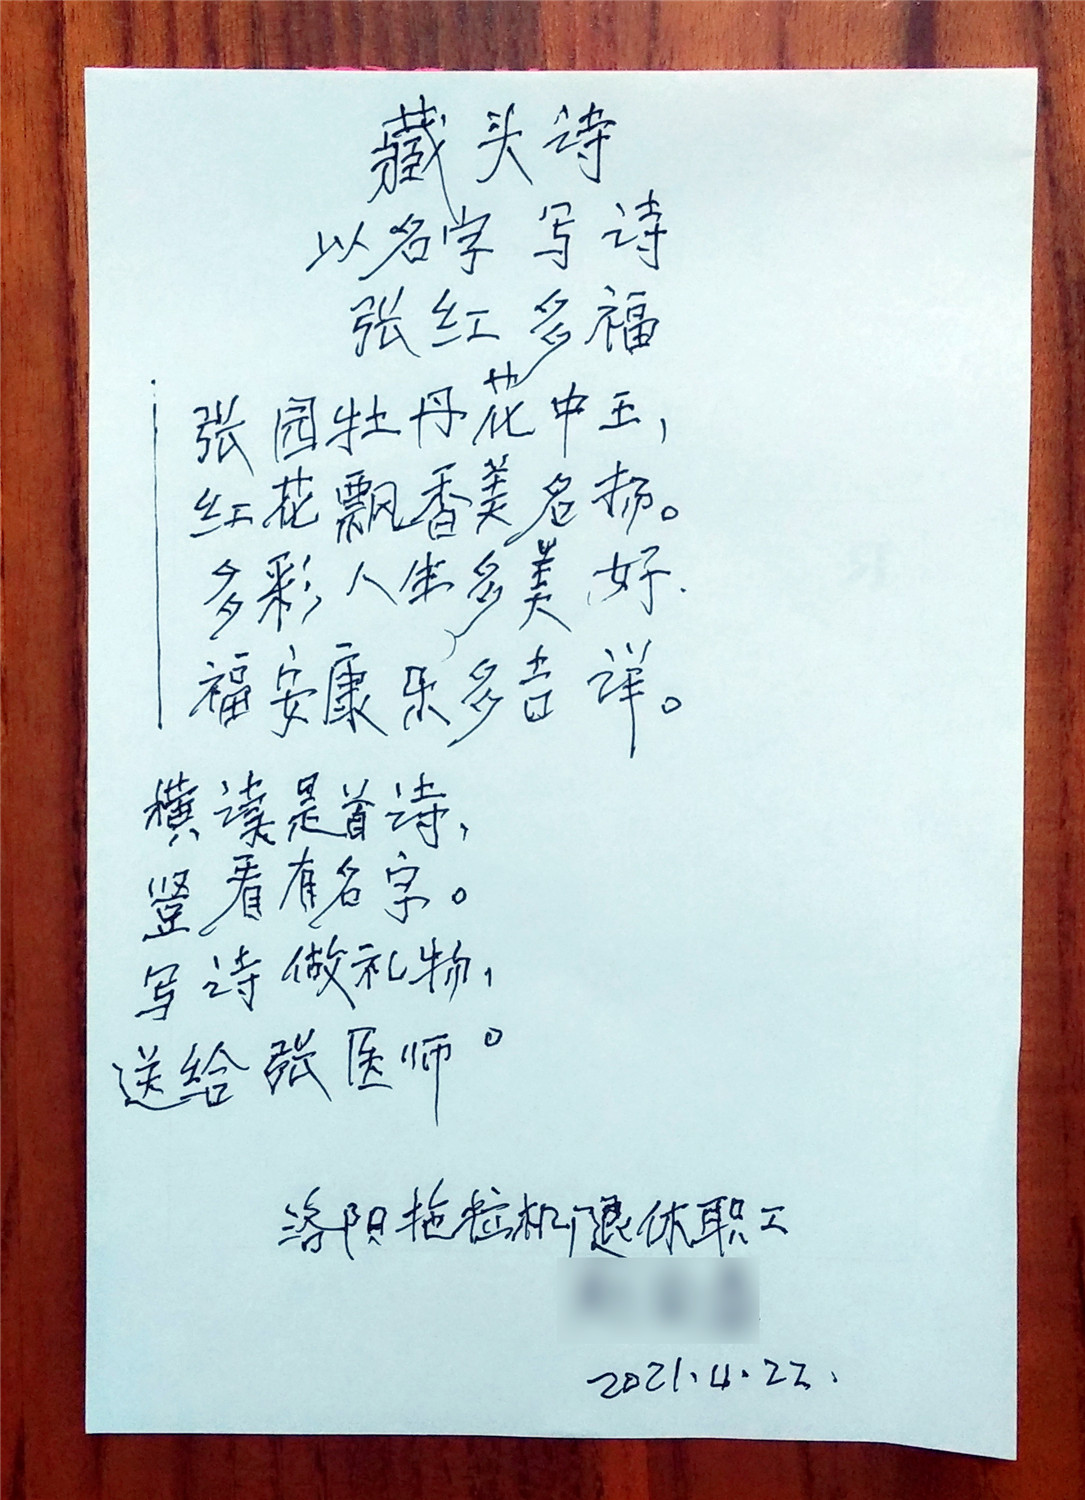 藏头诗
以名字写诗
张红多福
张园牡丹花中王，
红花飘香美名扬。
多彩人生多美好.
福安康乐多吉祥。
横读是首诗，
竖看有名字。
写诗做礼物，
送给张医师。
洛阳拖拉机厂退休职工
2021.4.22.